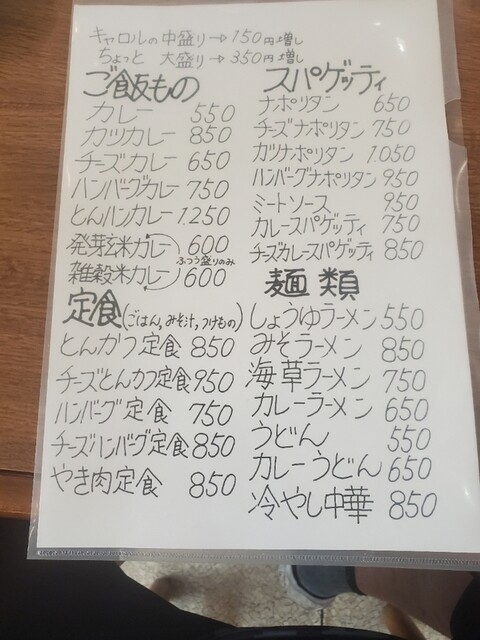 キャロルの中盛り→150円増し
ちょっと 大盛り→350円増し
ご飯もの
カレー 550
カツカレー 850
チーズカレー 650
ハンバーグカレー 750
とんハンカレー 1.250
発芽玄米カレー 600
ふつう盛りのみ
雑穀米カレー 600
定食(ごはん,みそ汁,つけもの)
とんかつ定食 850
チーズとんカツ定食 950
ハンバーグ定食 750
チーズハンバーグ定食 850
やき肉定食 850
スパゲッティ
ナポリタン 650
チーズナポリタン 750
カツナポリタン 1.050
ハンバーグナポリタン 950
ミートソース 950
カレースパゲッティ 750
チーズカレースパゲッティ 850
麺類
しょうゆラーメン 550
みそラーメン 850
海草ラーメン 750
カレーラーメン 650
うどん 550
カレーうどん 650
冷やし中華 850